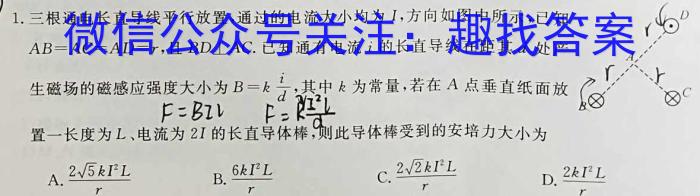 1. 三根通电长直导线平行放置,通过的电流大小均为 I,方向如图中所示,已知
AB=AC=AD=r,且 BD⊥AC. 已知通有电流 i 的长直导线在距其 d 处产
微信公众号关注：趣找答案
生磁场的磁感应强度大小为 B=k i/d,其中 k 为常量,若在 A 点垂直纸面放
F=BIL F=
置一长度为 L、电流为 2I 的长直导体棒,则此导体棒受到的安培力大小为
A. 2√5kI²L/r B. 6kI²L/r C. 2√2kI²L/r D. 2kI²L/r
D
r
A
r r
B C